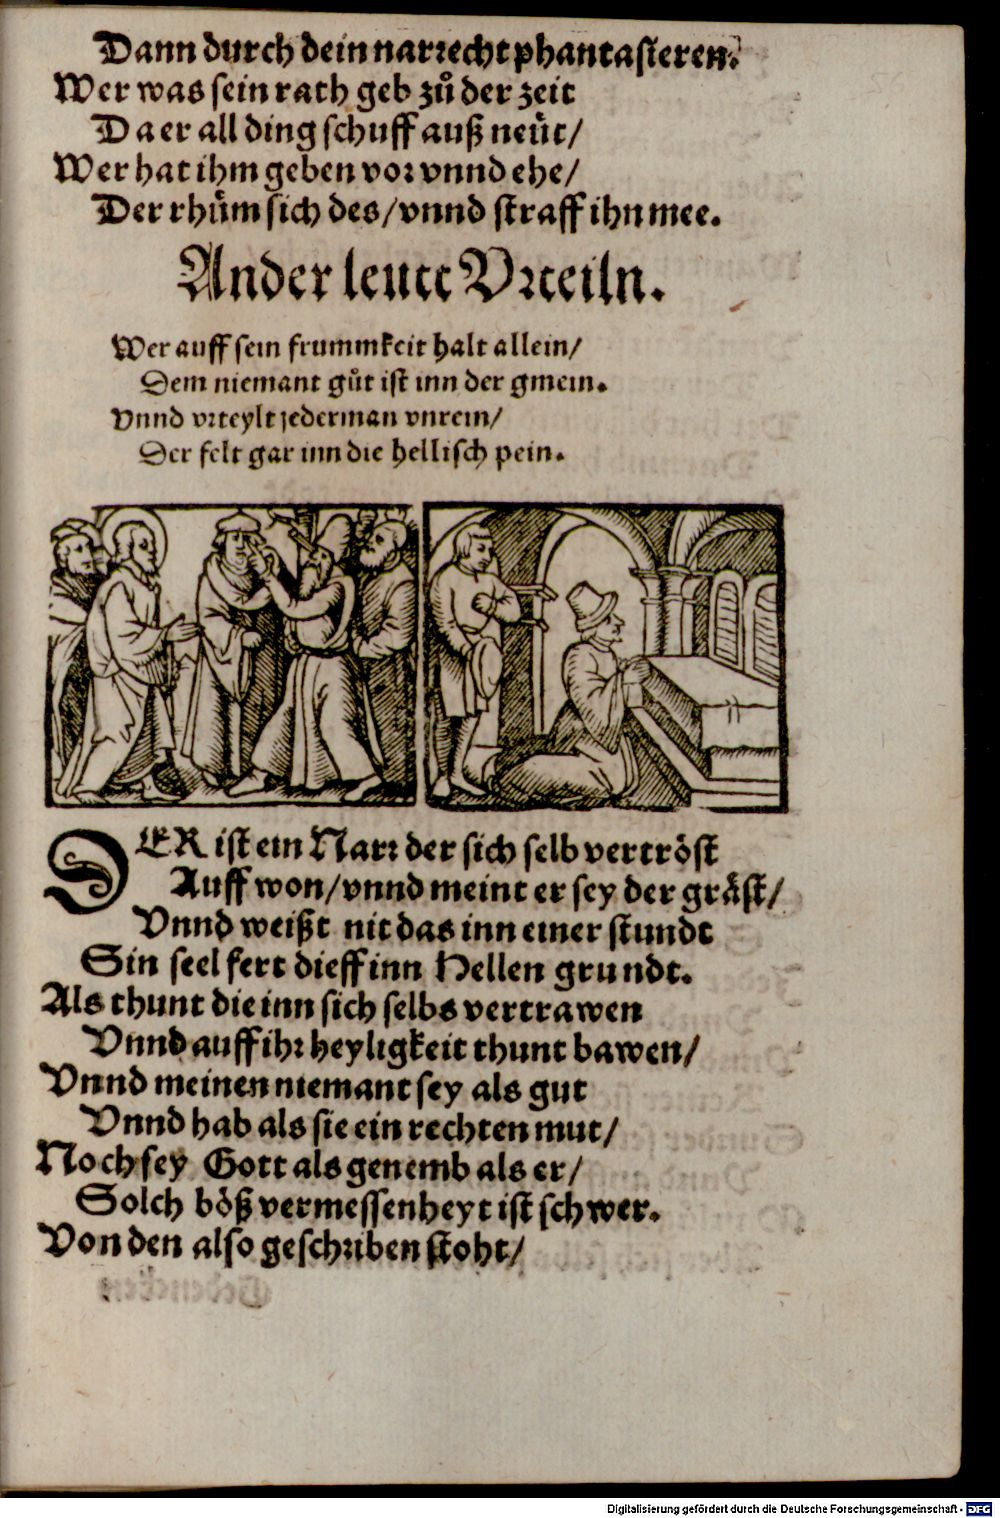 Dann durch dein narrecht phantasieren.
Wer was sein rath geb zů der zeit
Da er all ding schuff auß neüt/
Wer hat ihm geben vor vnnd ehe/
Der rhům sich des/vnnd straff ihn mee.
Ander leutt Vrteiln.
Wer auff sein frummkeit halt allein/
Dem niemant gůt ist inn der gmein.
Vnnd vrteylt jederman vnrein/
Der felt gar inn die hellisch pein.
DER ist ein Narr der sich selb vertröst
Auff won/vnnd meint er sey der gräst/
Vnnd weißt nit das inn einer stundt
Sin seel fert dieff inn Hellen grundt.
Als thunt die inn sich selbs vertrawen
Vnnd auff ihr heyligkeit thunt bawen/
Vnnd meinen niemant sey als gut
Vnnd hab als sie ein rechten mut/
Noch sey Gott als genemb als er/
Solch böß vermessenheyt ist schwer.
Von den also geschriben stoht/
Digitalisierung gefördert durch die Deutsche Forschungsgemeinschaft - DFG